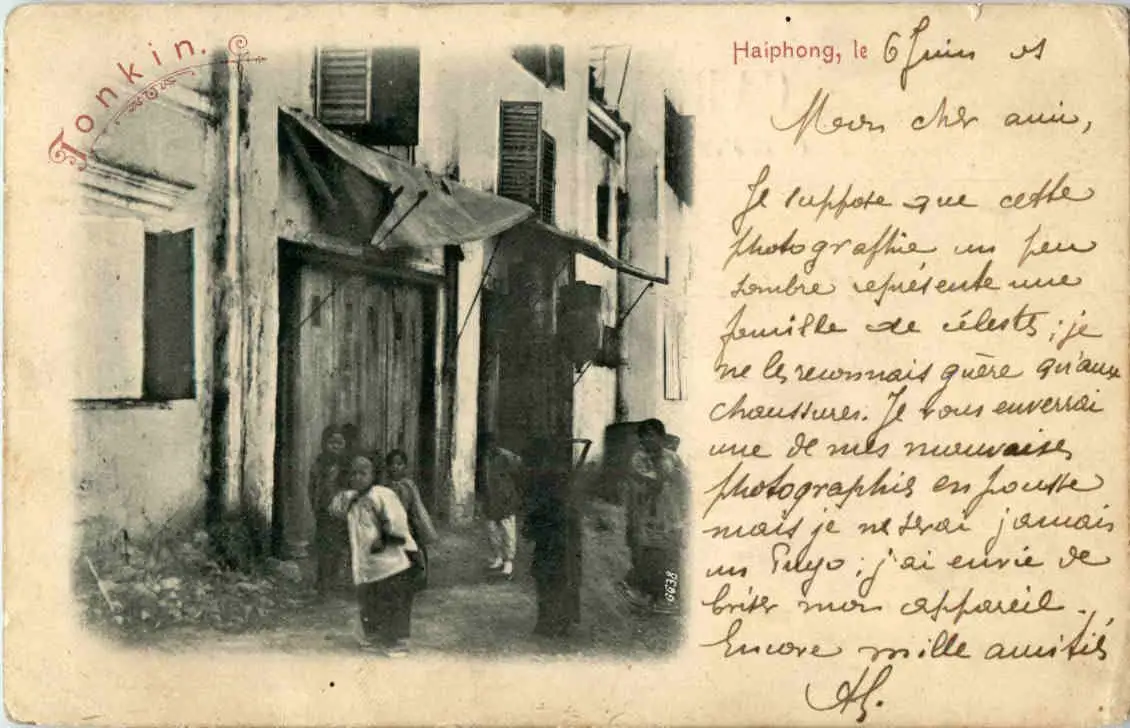 Tonkin.
Haiphong, le 6 Juin 01
Mon cher ami,
Je suppose que cette
photographie un peu
sombre représente une
famille de célests ; je
ne les reconnais guère qu'aux
chaussures. Je vous enverrai
une de mes mauvaises
photographies en pousse
mais je ne serai jamais
un Puyo ; j'ai envie de
briser mon appareil.
Encore mille amitiés
6638